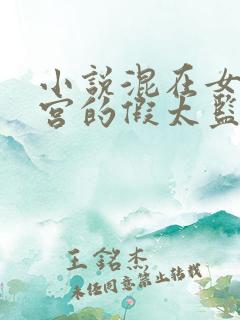 小説混在女
宮的假太監
王銘杰
未經同意禁止轉載